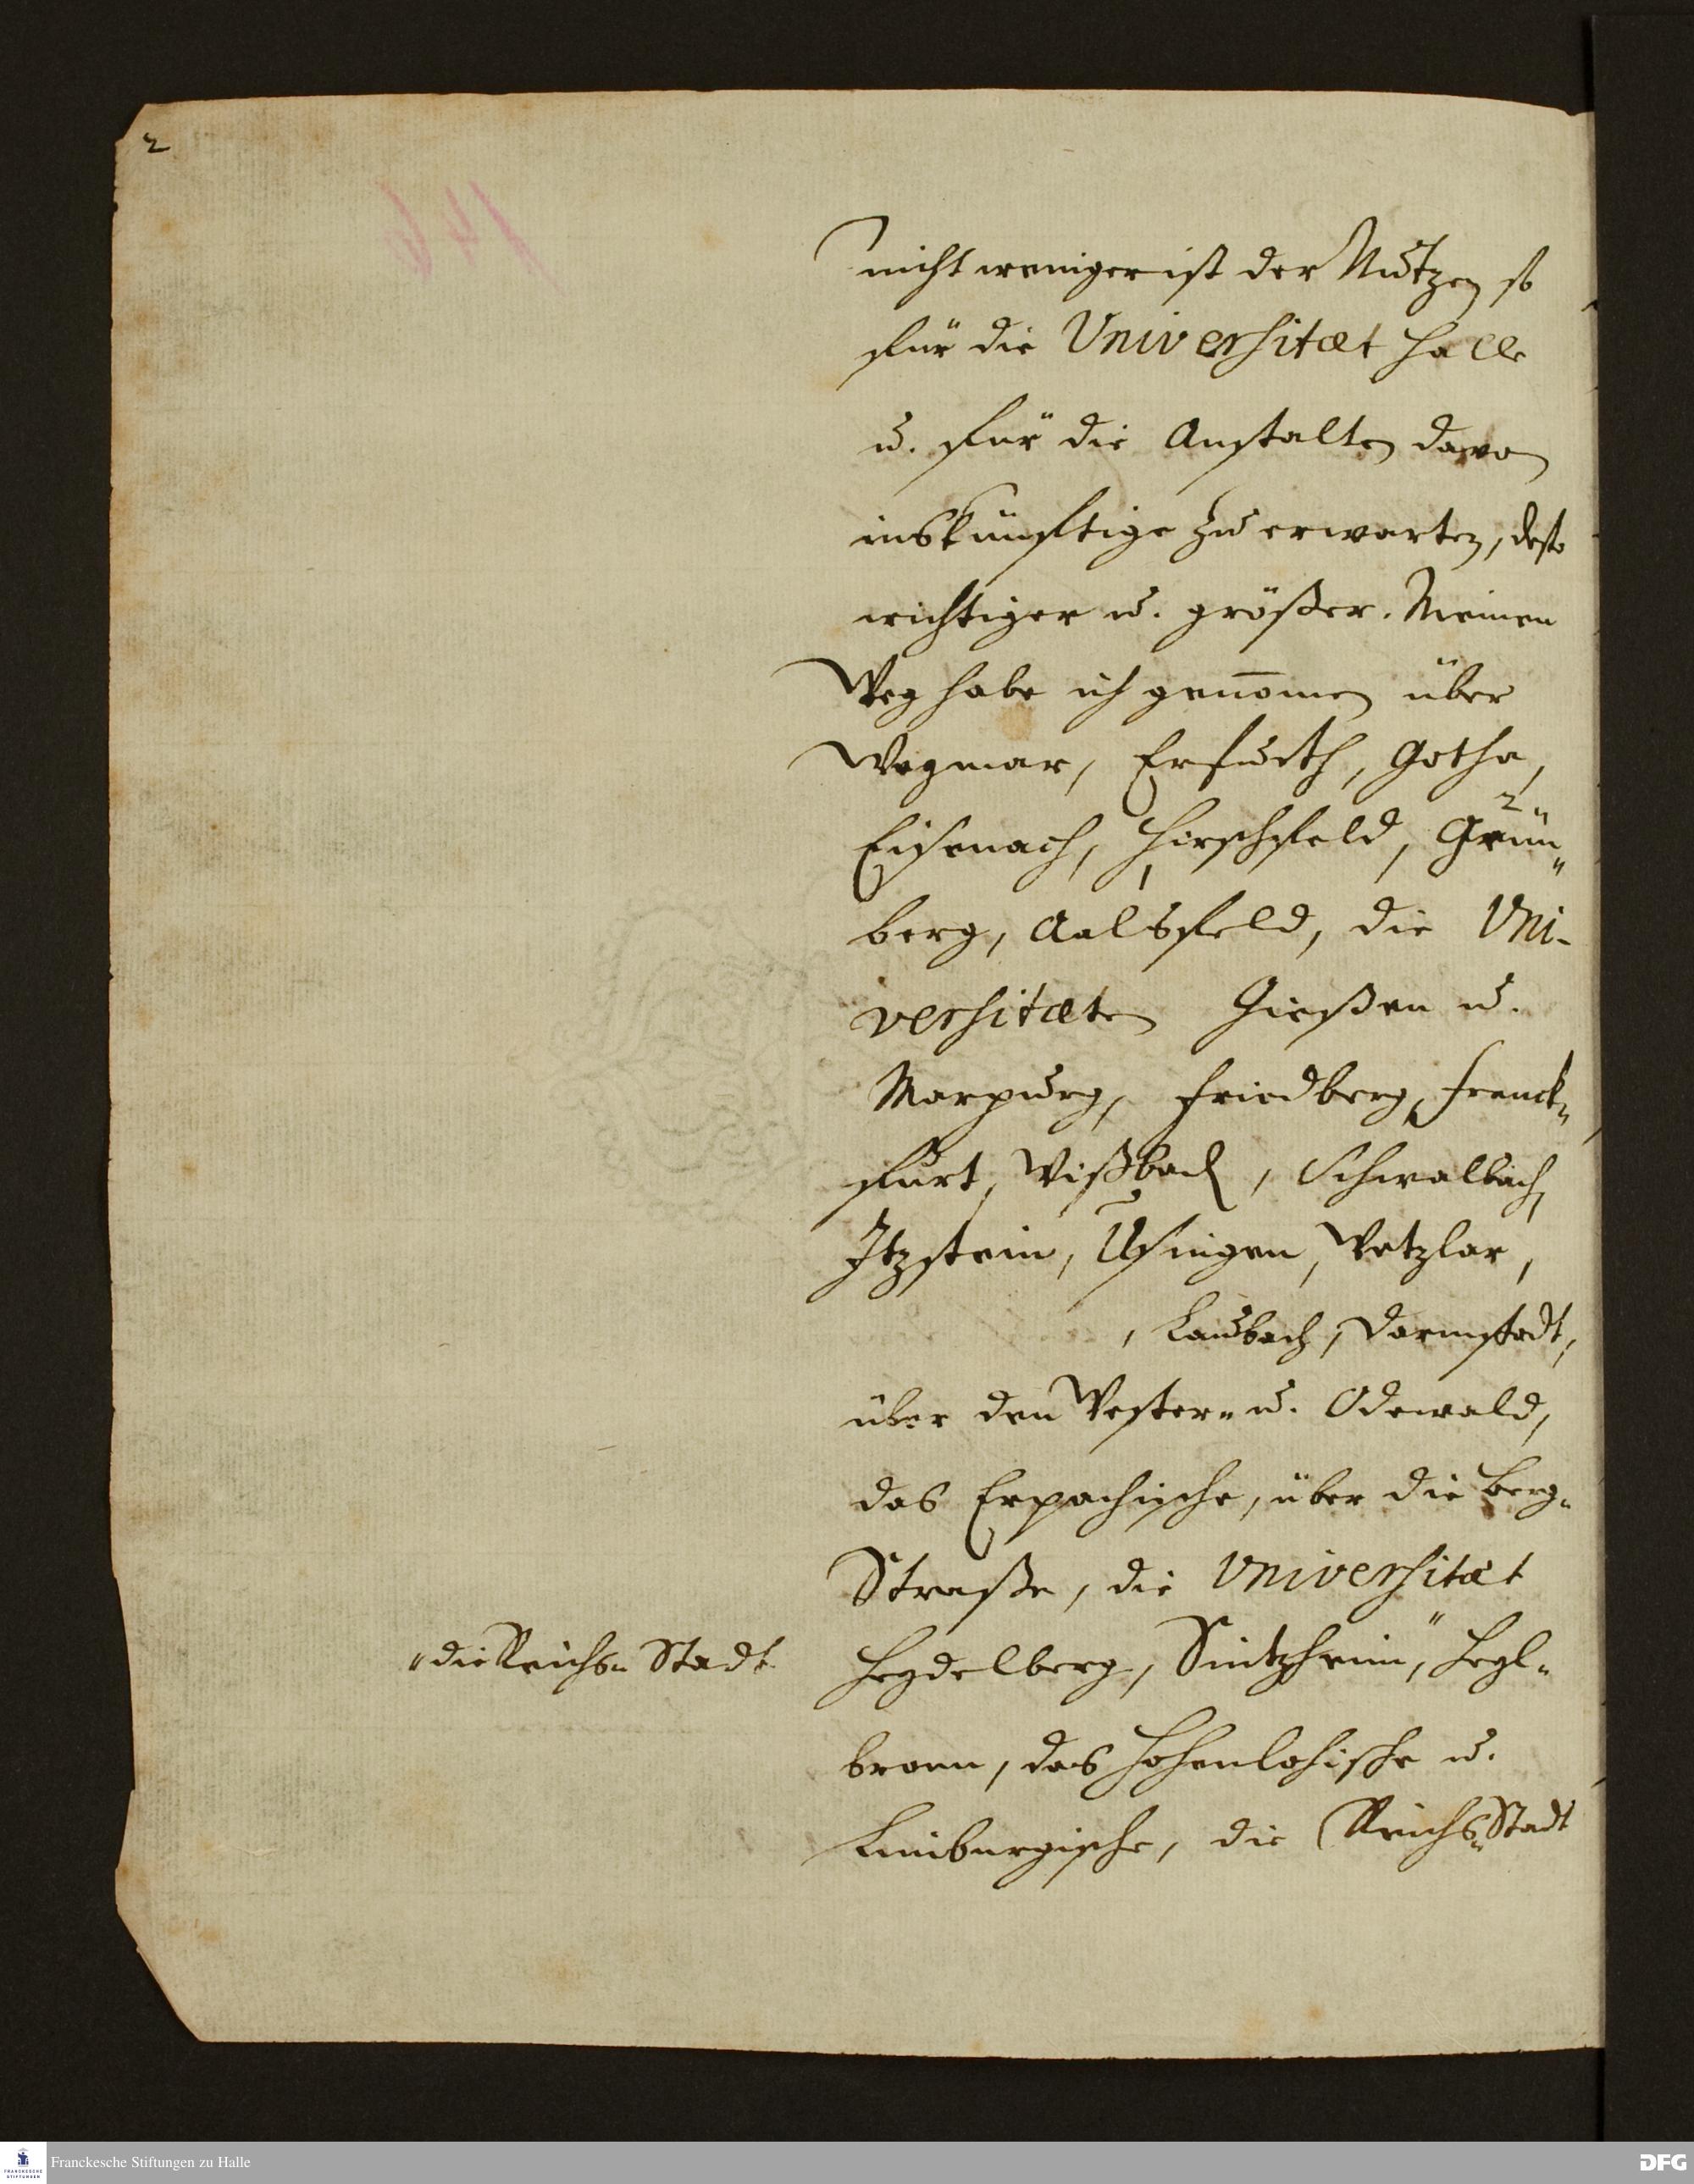 2
nicht weniger ist der Nutzen so
für die Universitæt Halle
u. für die Anstalten davon
inskünftige zu erwarten, desto
wichtiger u. größer. Meinen
Weg habe ich genom̄en über
Weymar, Erfurth, Gotha,
2
Eisenach, Hirschfeld, Grün„
berg, Aalsfeld, die Uni-
versitæten Gießen u.
Marpurg, Friedberg, Franck„
furt, Wißbad, Schwalbach,
Itzstein, Usingen, Wetzlar,
, Laubach, Darmstadt,
über den Wester„ u. Odewald,
das Erpachische, über die Berg„
Straße, die Universitæt
„die Reichs„ Stadt
Heydelberg, Sintzheim,„ Heyl„
bronn, das Hohenlohische u.
Limburgische, die Reichs„Stadt
FRANCKESCHE STIFTUNGEN
Franckesche Stiftungen zu Halle
DFG